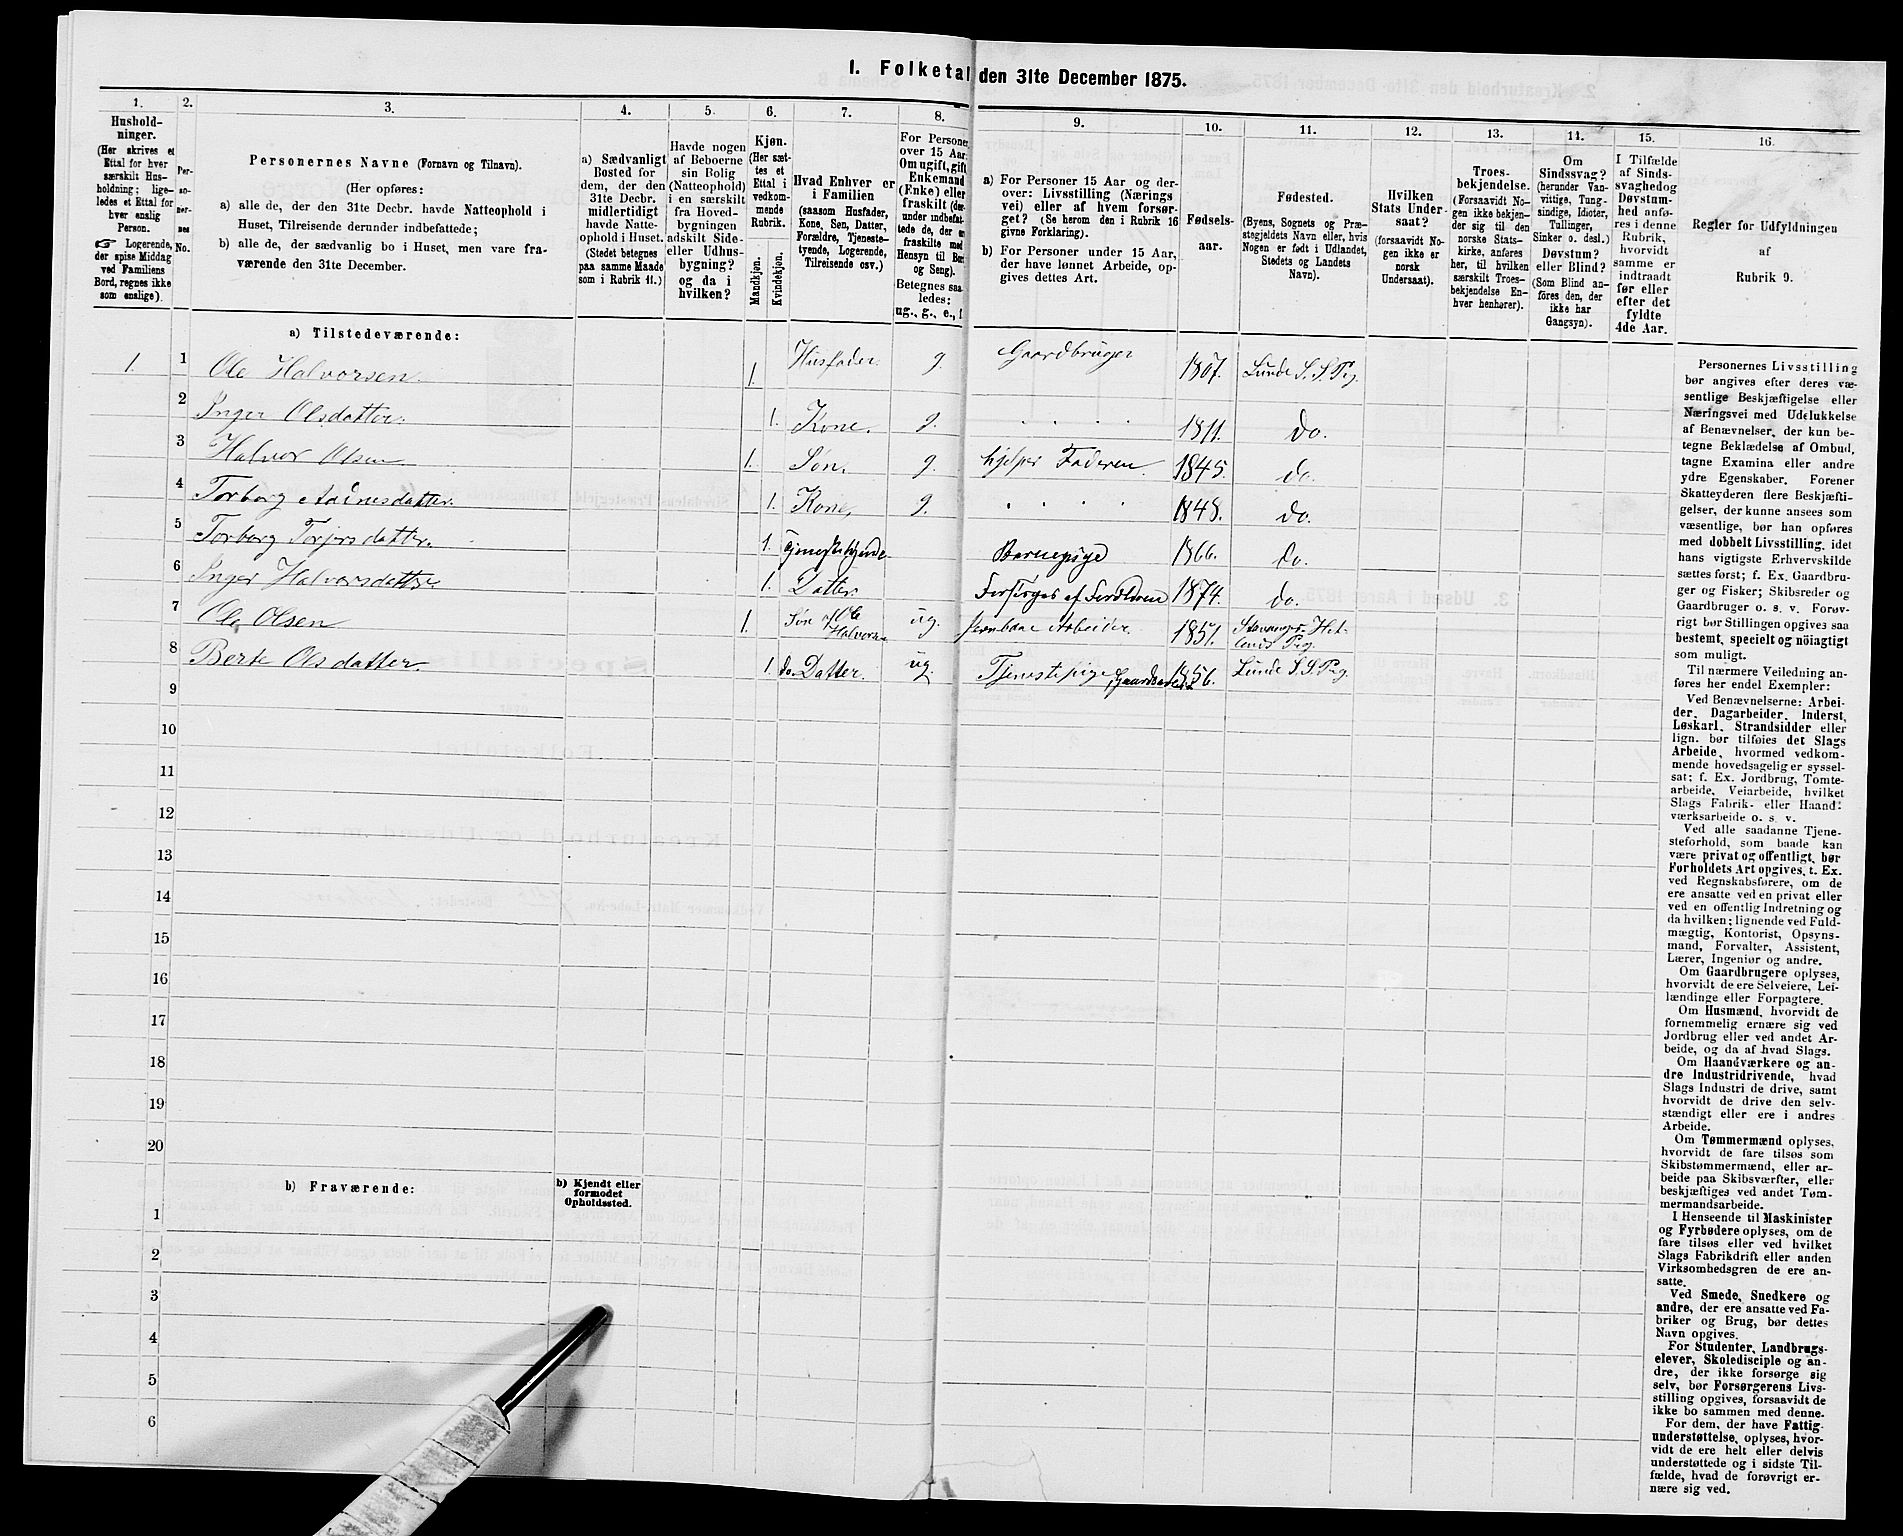 1. Folketal den 31te December 1875.
1. 2. 3. 4. 5. 6. 7. 8. 9. 10. 11. 12. 13. 14. 15. 16.
Hushold-
ninger.
(Her skrives et
Ettal for hver
særskilt Hus-
holdning; lige-
ledes et Ettal for
hver enslig
Person.
☞ Logerende,
der spise Middag
ved Familiens
Bord, regnes ikke
som enslige).
Per-
so-
ner-
nes
No.
Personernes Navne (Fornavn og Tilnavn).
(Her opføres:
a) alle de, der den 31te Decbr. havde Natteophold i
Huset, Tilreisende derunder indbefattede;
b) alle de, der sædvanlig bo i Huset, men vare fra-
værende den 31te December.
a) Sædvanligt
Bosted for
dem, der den
31te Decbr.
midlertidigt
havde Natte-
ophold i Huset.
(Stedet betegnes
paa samme Maade
som i Rubrik 11.)
Havde nogen
af Beboerne
sin Bolig
(Natteophold)
i en særskilt
fra Hoved-
bygningen
adskilt Side-
eller Udhus-
bygning?
og da i
hvilken?
Kjøn.
(Her sæt-
tes et
Ettal i
vedkom-
mende
Rubrik.
Mandkjøn.
Kvindekjøn.
Hvad Enhver er
i Familien
(saasom Husfader,
Kone, Søn, Datter,
Forældre, Tjeneste-
tyende, Logerende,
Tilreisende osv.)
For Personer
over 15 Aar:
Om ugift, gift,
Enkemand
(Enke) eller
fraskilt (der-
under indbefat-
tede de, der er
fraskilte med
Hensyn til Bord
og Seng).
Betegnes saa-
ledes:
ug., g., e., f.
a) For Personer 15 Aar og der-
over: Livsstilling (Nærings-
vei) eller af hvem forsør-
get? (Se herom den i Rubrik 16
givne Forklaring).
b) For Personer under 15 Aar,
der have lønnet Arbeide, op-
gives dettes Art.
Fødsels-
aar.
Fødested.
(Byens, Sognets og Præ-
stegjeldets Navn eller, hvis
Nogen er født i Udlandet,
Stedets og Landets
Navn).
Hvilken
Stats Under-
saat?
(forsaavidt No-
gen ikke er
norsk
Undersaat).
Troes-
bekjendelse.
(Forsaavidt No-
gen ikke bekjen-
der sig til den
norske Stats-
kirke, anføres
her, til hvilken
særskilt Troes-
bekjendelse En-
hver henhører).
Om
Sindssvag?
(herunder Van-
vittige, Tung-
sindige, Idioter,
Tullinger,
Sinker o. desl.)
Døvstum?
eller Blind?
(Som Blind an-
føres den, der
ikke har
Gangsyn).
I Tilfælde
af Sinds-
svaghed og
Døvstum-
hed anfø-
res i denne
Rubrik,
hvorvidt
samme er
indtraadt
før eller
efter det
fyldte
4de Aar.
Regler for Udfyldningen
af
Rubrik 9.
a) Tilstedeværende:
1. 1 Ole Halvorsen. 1. Husfader. g. Gaardbruger 1807. Lunde S. S. Pg.
2 Inger Olsdatter. 1. Kone. g. 1811. do.
3 Halvor Olsen 1. Søn. g. hjelper Faderen. 1845. do.
4 Torborg Aadnesdatter. 1. Kone, g. 1848. do.
5 Torborg Torjersdatter. 1. Tjenestetyende. Barnepige 1866. do.
6 Inger Halvorsdatter 1. Datter Forsørges af Forældren 1874. do.
7 Ole Olsen 1. Søn af Ole Halvorsen ug. Jernbane Arbeider. 1851. Stavanger Hetlands Pg.
8 Berte Olsdatter. 1. do. Datter. ug. Tjenestepige 1856. Lunde S. S. Pg.
9
10
11
12
13
14
15
16
17
18
19
20
b) Fraværende:
b) Kjendt eller
formodet
Opholdssted.
1
2
3
4
5
6
Personernes Livsstilling
bør angives efter deres væ-
sentlige Beskjæftigelse eller
Næringsvei med Udelukkelse
af Benævnelser, der kun be-
tegne Beklædelse af Ombud,
tagne Examina eller andre
ydre Egenskaber. Forener
Skatteyderen flere Beskjæfti-
gelser, der kunne ansees som
væsentlige, bør han opføres
med dobbelt Livsstilling, idet
hans vigtigste Erhvervskilde
sættes først; f. Ex. Gaardbru-
ger og Fisker; Skibsreder og
Gaardbruger o. s. v. Forøv-
rigt bør Stillingen opgives saa
bestemt, specielt og nöiagtigt
som muligt.
Til nærmere Veiledning an-
føres her endel Exempler:
Ved Benævnelserne: Arbei-
der, Dagarbeider, Inderst,
Løskarl, Strandsidder eller
lign. bør tilføies det Slags
Arbeide, hvormed vedkom-
mende hovedsagelig er syssel-
sat; f. Ex. Jordbrug, Tomte-
arbeide, Veiarbeide, hvilket
Slags Fabrik- eller Haand-
værksarbeide o. s. v.
Ved alle saadanne Tjene-
steforhold, som baade kan
være privat og offentligt, bør
Forholdets Art opgives, t. Ex.
ved Regnskabsførere, om de
ere ansatte ved en privat eller
ved en offentlig Indretning og
da hvilken; lignende ved Fuld-
mægtig, Kontorist, Opsyns-
mand, Forvalter, Assistent,
Lærer, Ingeniør og andre.
Om Gaardbrugere oplyses,
hvorvidt de ere Selveiere, Lei-
lændinge eller Forpagtere.
Om Husmænd, hvorvidt de
fornemmelig ernære sig ved
Jordbrug eller ved andet Ar-
beide, og da af hvad Slags.
Om Haandværkere og an-
dre Industridrivende, hvad
Slags Industri de drive, samt
hvorvidt de drive den selv-
stændigt eller ere i andres
Arbeide.
Om Tømmermænd oplyses,
hvorvidt de fare tilsøs som
Skibstømmermænd, eller ar-
beide paa Skibsværfter, eller
beskjæftiges ved andet Tøm-
mermandsarbeide.
I Henseende til Maskinister
og Fyrbødere oplyses, om de
fare tilsøs eller ved hvilket
Slags Fabrikdrift eller anden
Virksomhedsgren de ere an-
satte.
Ved Smede, Snedkere og
andre, der ere ansatte ved Fa-
briker og Brug, bør dettes
Navn opgives.
For Studenter, Landbrugs-
elever, Skoledisciple og an-
dre, der ikke forsørge sig
selv, bør Forsørgerens Livs-
stilling opgives, forsaavidt de
ikke bo sammen med denne.
For dem, der have Fattig-
understøttelse, oplyses, hvor-
vidt de ere helt eller delvis
understøttede og i sidste Til-
fælde, hvad de forøvrigt er-
nære sig ved.